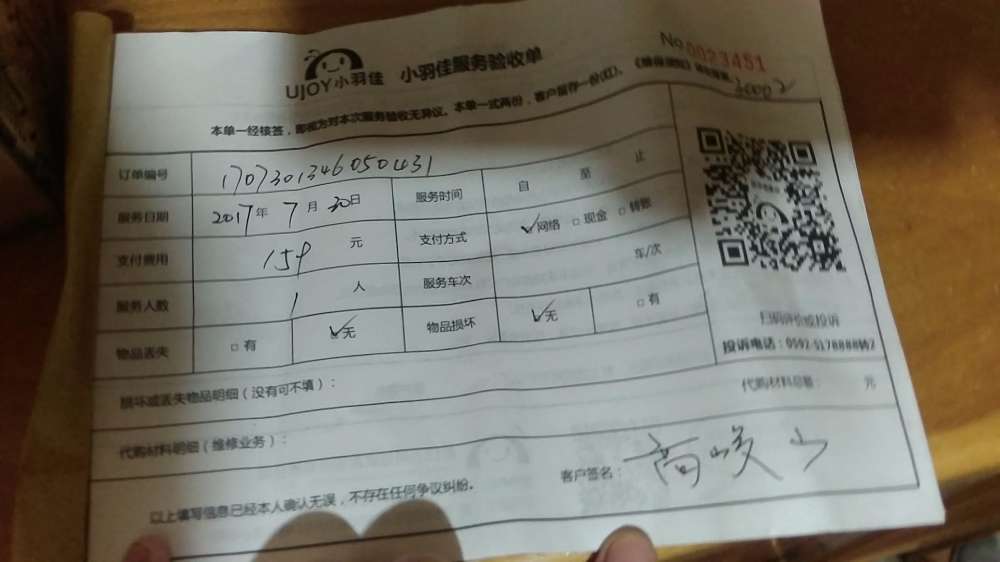 UJOY小羽佳 小羽佳服务验收单
No 0023451
本单一经接签，即视方对本次服务验收无异议。本单一式两份，客户留存一份(红)。
订单编号 1707301346050431
服务日期 2017年 7月 30日 服务时间 自 至 止
支付费用 159 元 支付方式 网络 现金 转账
服务人数 1 人 服务车次 车/次
物品丢失 有 无 物品损坏 无 有
扫码评价或投诉
投诉电话：0592-5178888转2
损坏或丢失物品明细（没有可不填）：
代购材料明细（维修业务）： 代购材料总额： 元
以上填写信息已经本人确认无误，不存在任何争议纠纷。 客户签名：